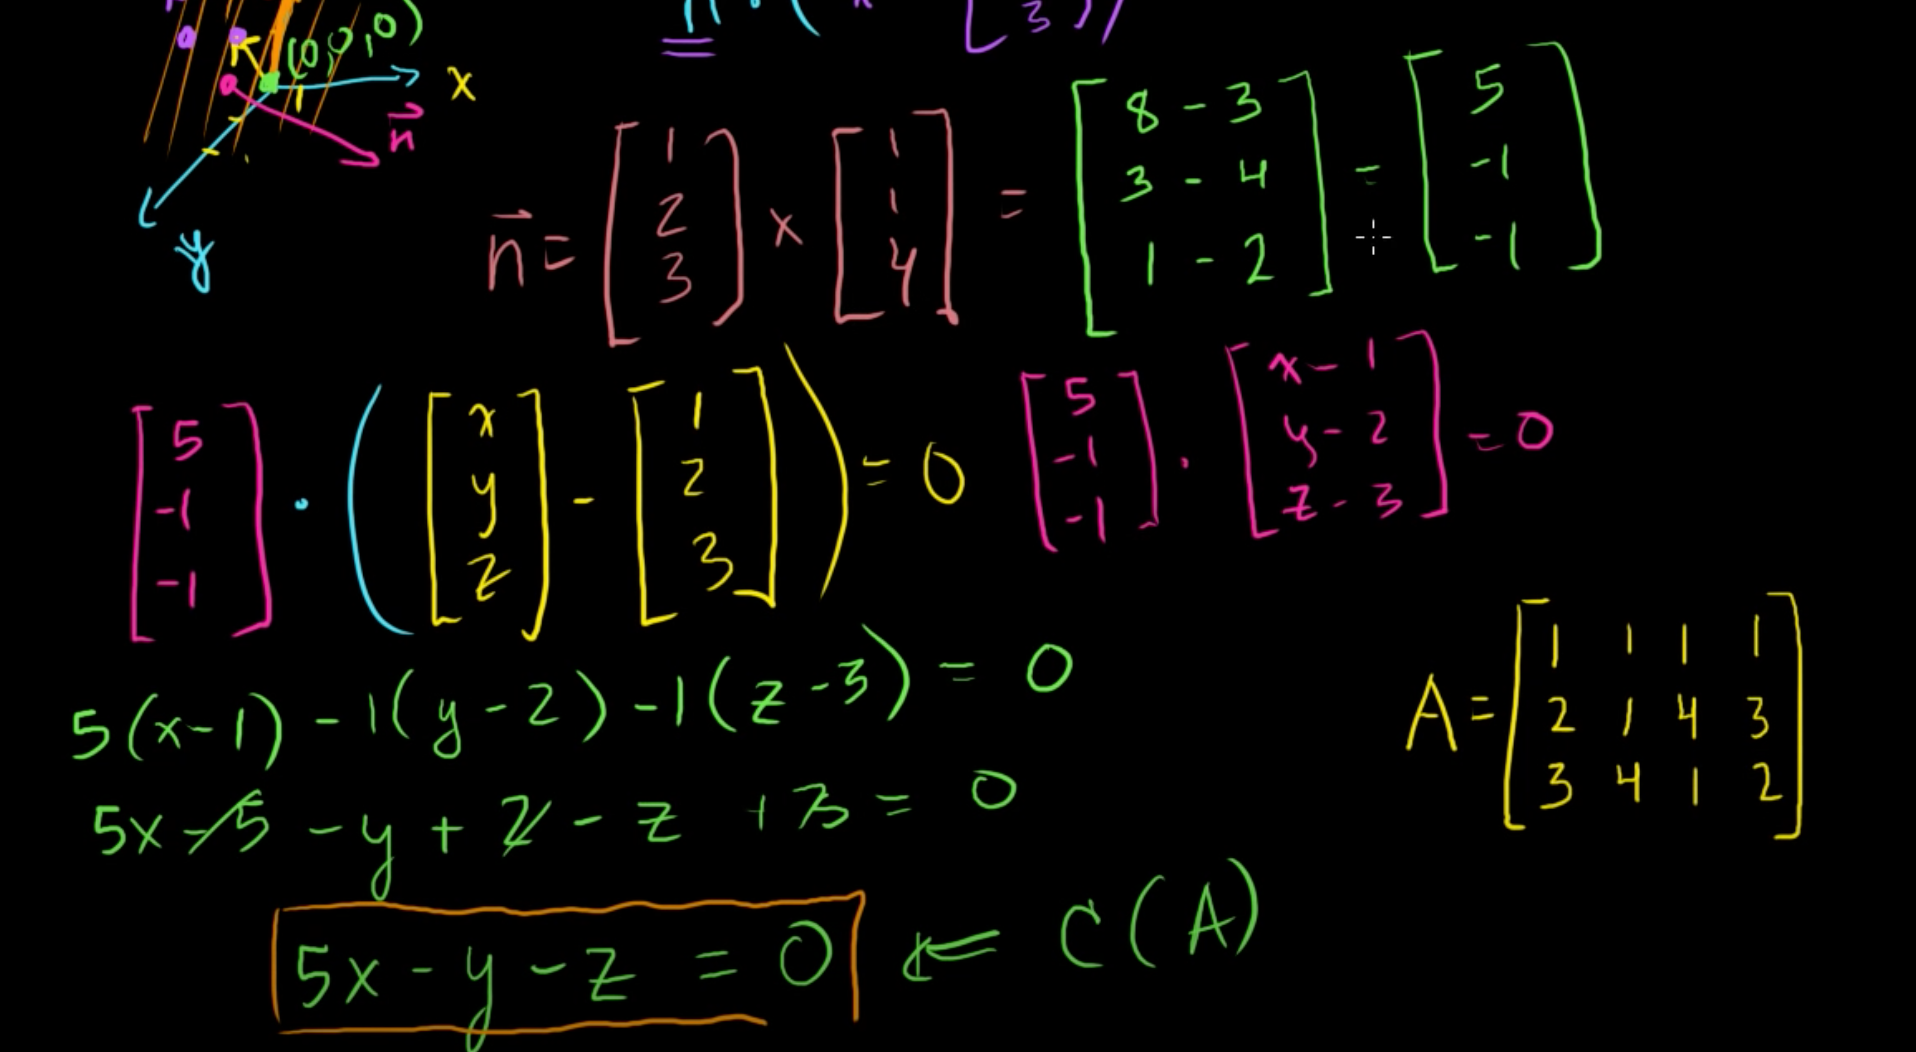 (0,0,0)
x
n⃗
y
n⃗ = [1 2 3] × [1 1 4] = [8 - 3, 3 - 4, 1 - 2] = [5 -1 -1]
[5 -1 -1] · ([x y z] - [1 2 3]) = 0
[5 -1 -1] · [x - 1, y - 2, z - 3] = 0
5(x-1) - 1(y-2) - 1(z-3) = 0
5x - 5 - y + 2 - z + 3 = 0
5x - y - z = 0 ⇐ C(A)
A = [1 1 1 1
2 1 4 3
3 4 1 2]